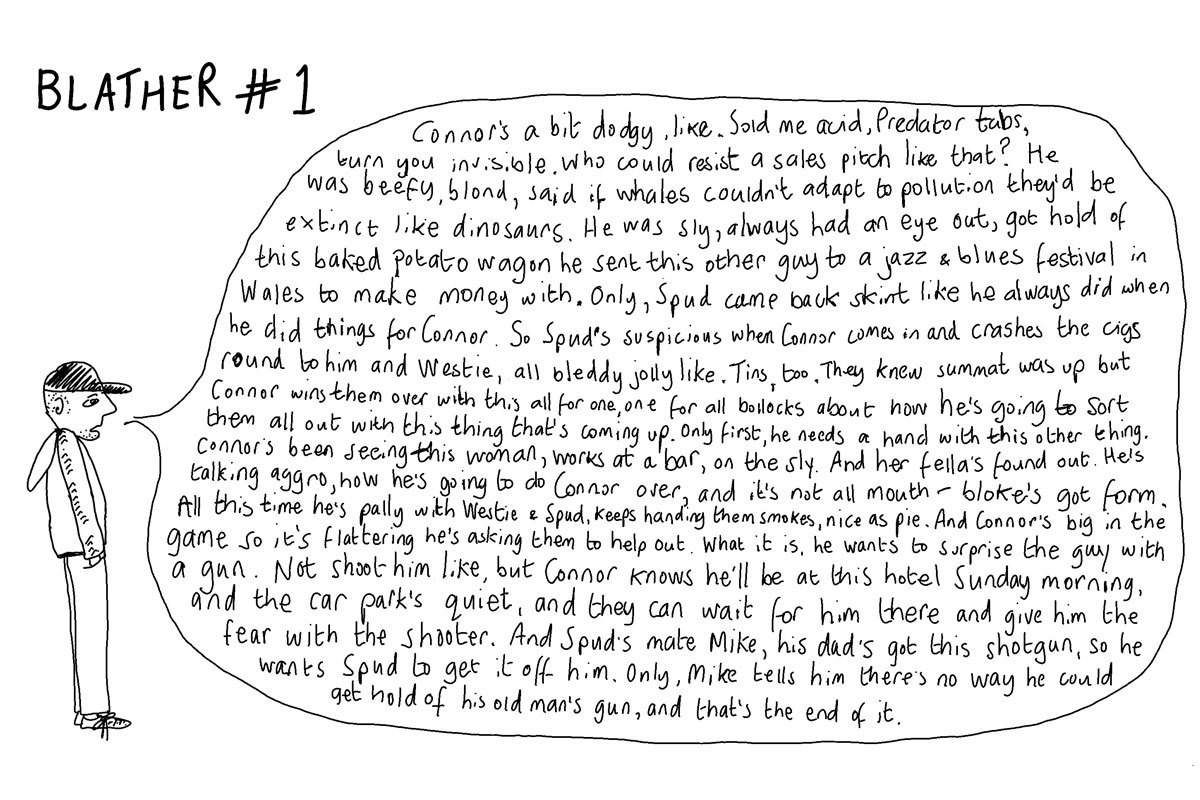 BLATHER #1
Connor's a bit dodgy, like. Sold me acid, Predator tabs,
turn you invisible. Who could resist a sales pitch like that? He
was beefy, blond, said if whales couldn't adapt to pollution they'd be
extinct like dinosaurs. He was sly, always had an eye out, got hold of
this baked potato wagon he sent this other guy to a jazz & blues festival in
Wales to make money with. Only, Spud came back skint like he always did when
he did things for Connor. So Spud's suspicious when Connor comes in and crashes the cigs
round to him and Westie, all bleddy jolly like. Tins, too. They knew summat was up but
Connor wins them over with this all for one, one for all bollocks about how he's going to sort
them all out with this thing that's coming up. Only first, he needs a hand with this other thing.
Connor's been seeing this woman, works at a bar, on the sly. And her fella's found out. He's
talking aggro, how he's going to do Connor over, and it's not all mouth - bloke's got form.
All this time he's pally with Westie & Spud, keeps handing them smokes, nice as pie. And Connor's big in the
game so it's flattering he's asking them to help out. What it is, he wants to surprise the guy with
a gun. Not shoot him like, but Connor knows he'll be at this hotel Sunday morning,
and the car park's quiet, and they can wait for him there and give him the
fear with the shooter. And Spud's mate Mike, his dad's got this shotgun, so he
wants Spud to get it off him. Only, Mike tells him there's no way he could
get hold of his old man's gun, and that's the end of it.